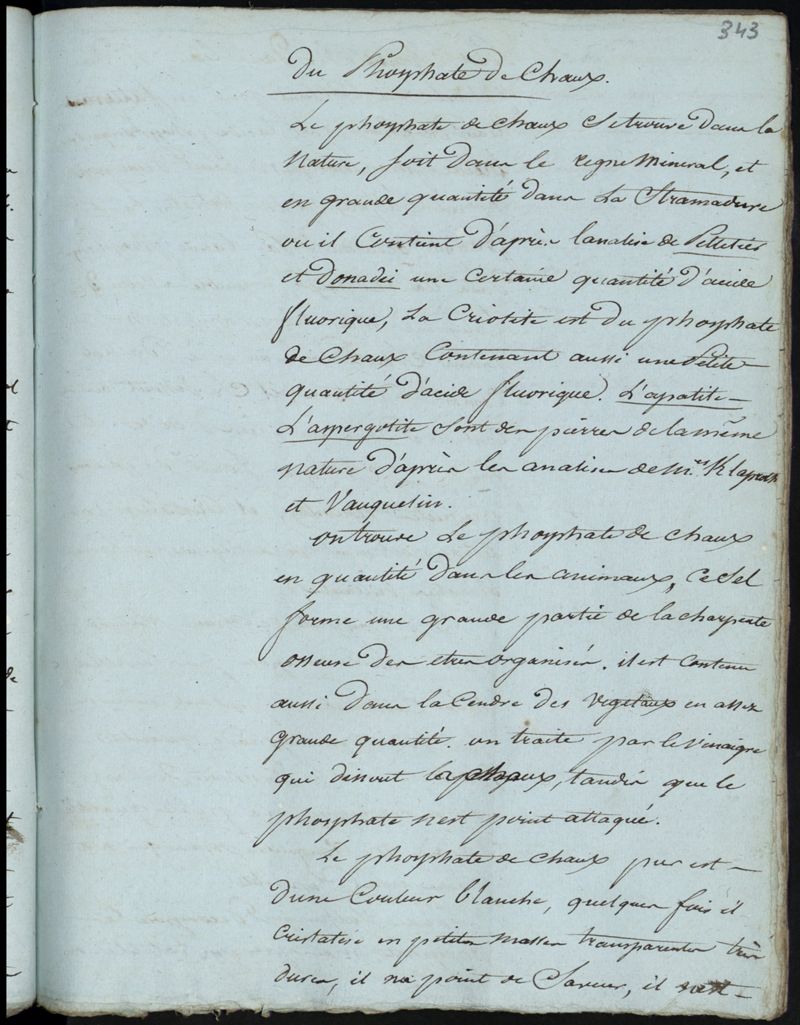 343
Du Phosphate de Chaux.
Le phosphate de chaux se trouve dans la
Nature, soit dans le regne Mineral, et
en grande quantité dans La Stramadure
ou il Contient d'après lanalise de Pelletier
et Donadei une certaine quantité d'acide
fluorique, La Criotite est du phosphate
de Chaux Contenant aussi une Petite
quantité d'acide fluorique. L'apatite
L'aspergotite sont des pierres de la même
nature d'après les analises de Mrs Klaproth
et Vauquelin.
on trouve Le phosphate de chaux
en quantité dans les animaux, ce Sel
forme une grande partie de la charpente
osseuse des etres organisés. il est contenu
aussi dans la Cendre des vegetaux en assez
grande quantité. on traite par le vinaigre
qui dissout la chaux, tandis que le
phosphate nest point attaqué.
Le phosphate de chaux pur est
dune Couleur blanche, quelques fois il
cristalise en petites masses transparentes très
dures, il na point de Saveur, il